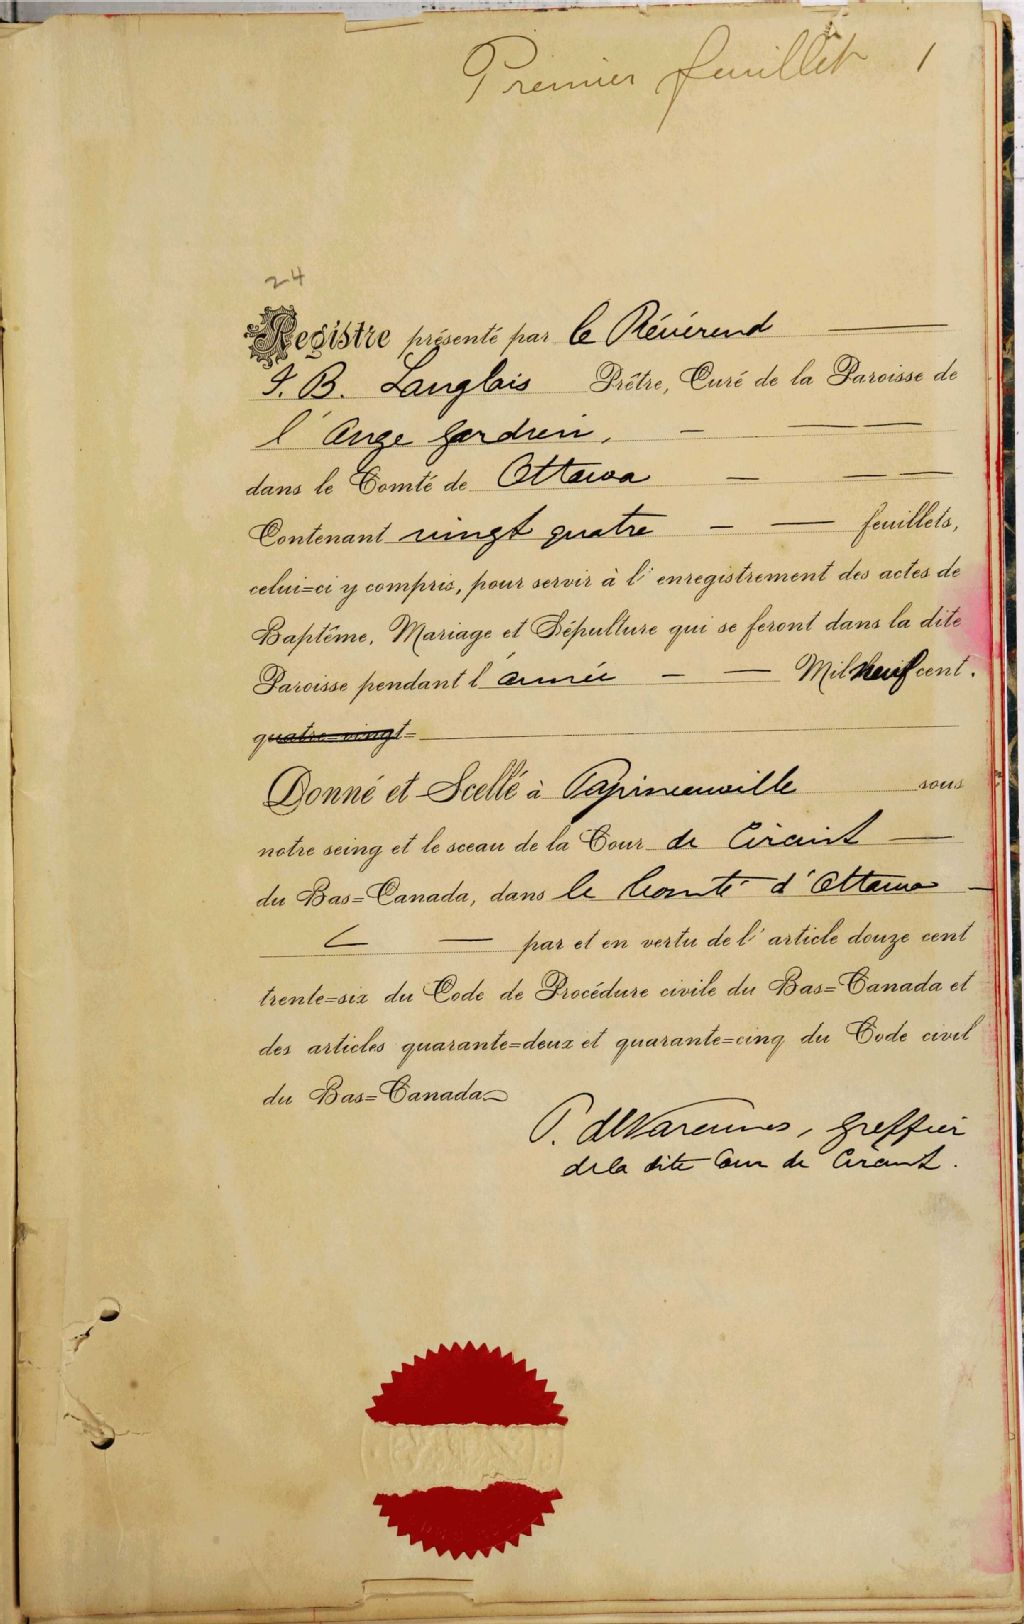 Premier feuillet 1
24
Registre présenté par le Révérend
F. B. Langlois Prêtre, Curé de la Paroisse de
l'Ange Gardien,
dans le Comté de Ottawa
Contenant vingt quatre feuillets,
celui=ci y compris, pour servir à l'enregistrement des actes de
Baptême, Mariage et Sépulture qui se feront dans la dite
Paroisse pendant l'année Mil neuf cent.
quatre=vingt=
Donné et Scellé à Papineauville sous
notre seing et le sceau de la Cour de Circuit
du Bas=Canada, dans le Comté d'Ottawa
par et en vertu de l'article douze cent
trente=six du Code de Procédure civile du Bas=Canada et
des articles quarante=deux et quarante=cinq du Code civil
du Bas=Canada
greffier
de la dite Cour de Circuit.